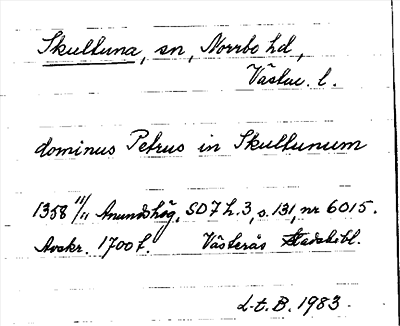 Skultuna, sn, Norrbo hd,
Västm. l.
dominus Petrus in Skultunum
1358 11/11 Anundshög, SD 7 h. 3, s. 131, nr 6015.
Avskr. 1700 t. Västerås Stadsbibl.
L.t.B. 1983.